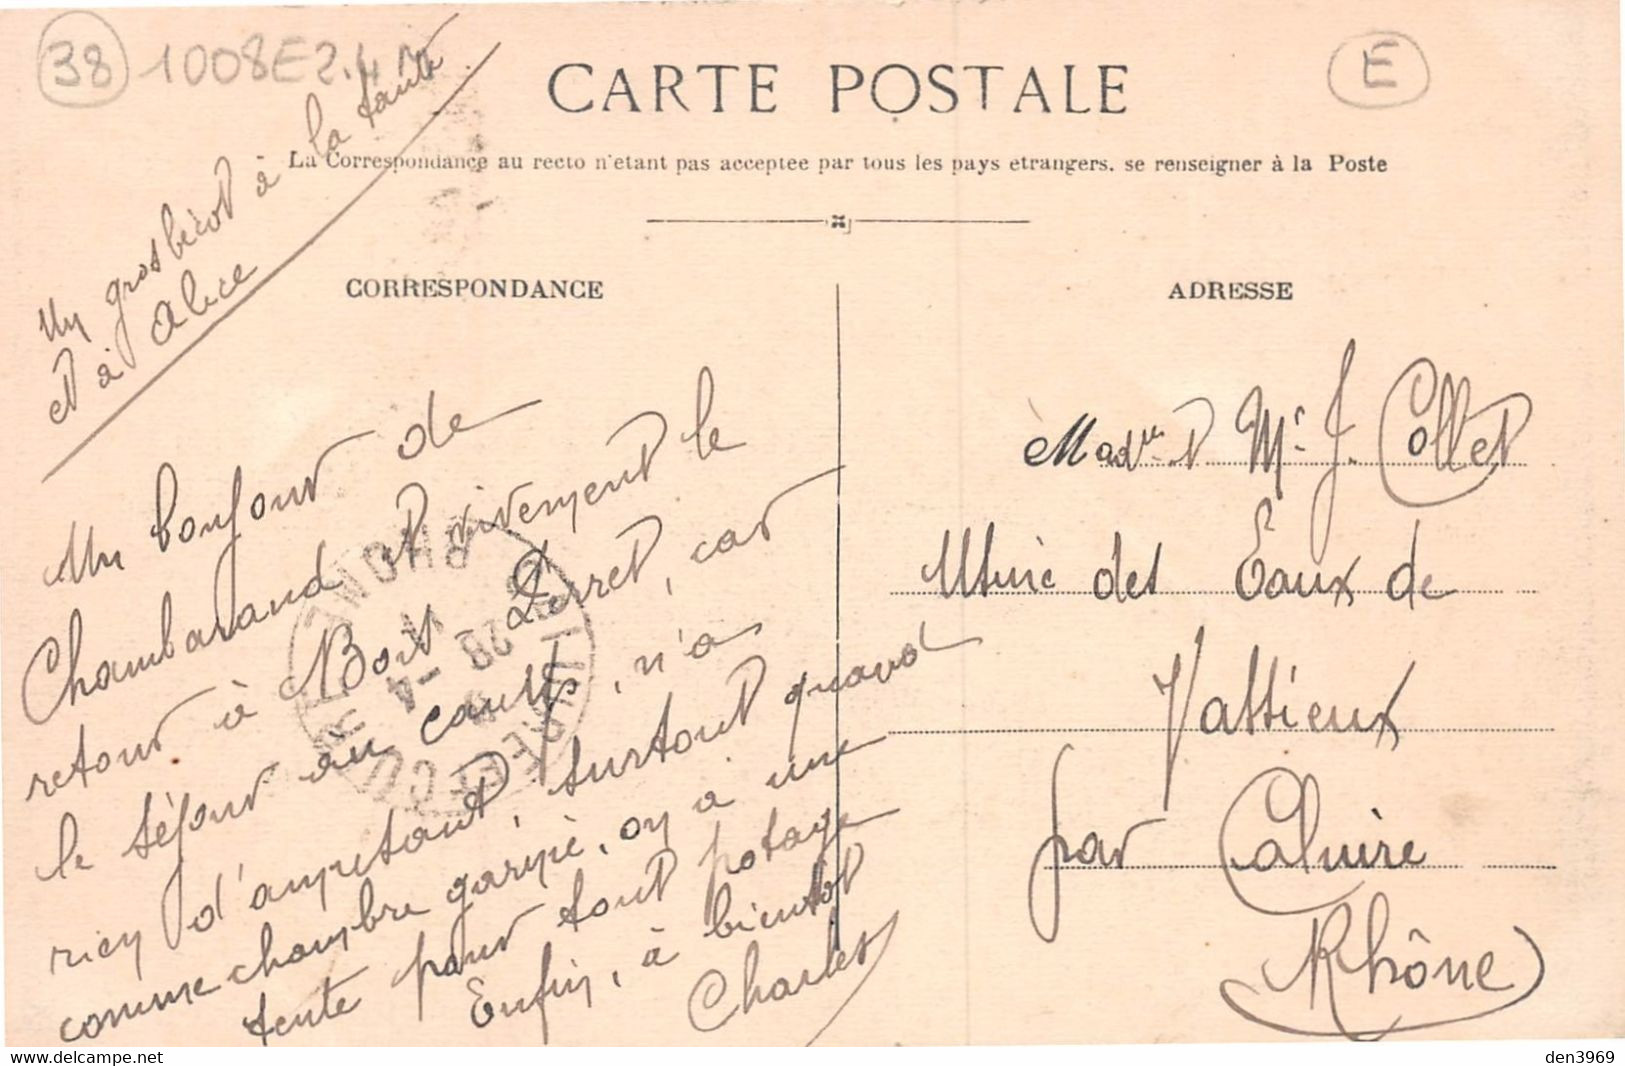 38 1008E2.4
E
CARTE POSTALE
La Correspondance au recto n'etant pas acceptee par tous les pays etrangers. se renseigner à la Poste
CORRESPONDANCE
ADRESSE
Un gros bécot à la tante
et à Alice
Un bonjour de
Chambarand et vivement le
retour à Bois-Perret, car
le séjour au camp, n'a
rien d'ampetant, surtout quand
comme chambre garnie, on a une
tente pour tout potage
Enfin, à bientot
Charles
Madme et Mr J. Collet
Usine des Eaux de
Vassieux
par Caluire
Rhône
RHONE
28 -4
den3969